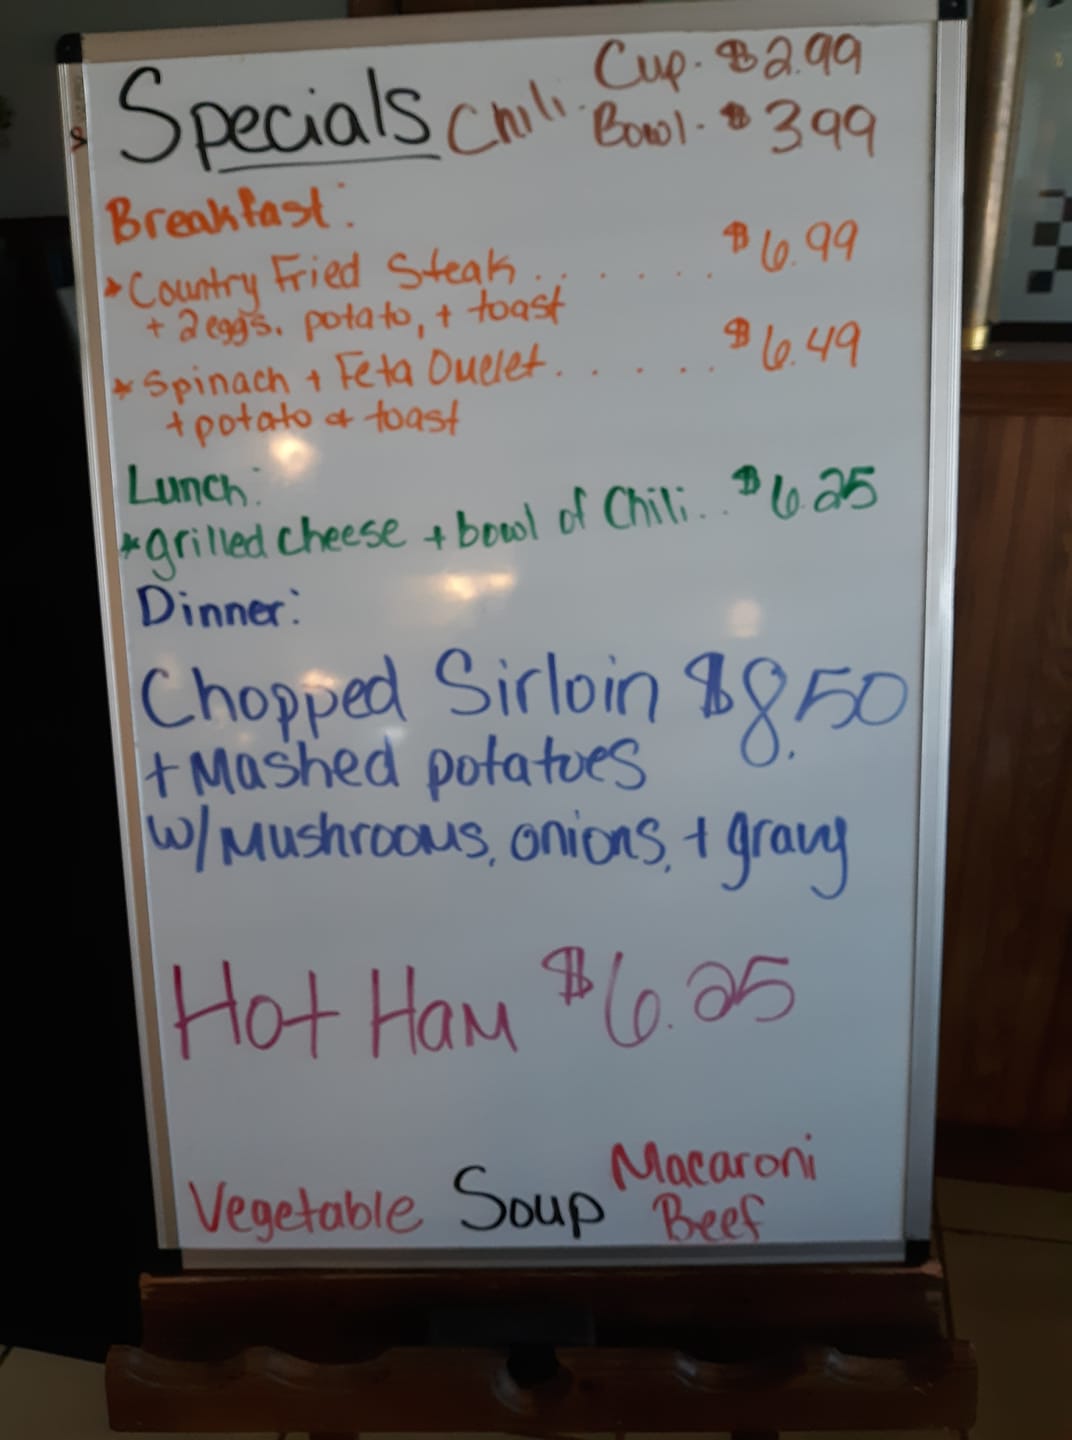 Specials Chili. Cup. $2.99
Bowl. $399
Breakfast:
*Country Fried Steak....... $6.99
+ 2 eggs. potato, + toast
*Spinach + Feta Omelet...... $6.49
+ potato & toast
Lunch:
*grilled cheese + bowl of Chili.. $6.25
Dinner:
Chopped Sirloin $8.50
+ Mashed potatoes
w/Mushrooms, onions, + gravy
Hot Ham $6.25
Vegetable Soup Macaroni
Beef